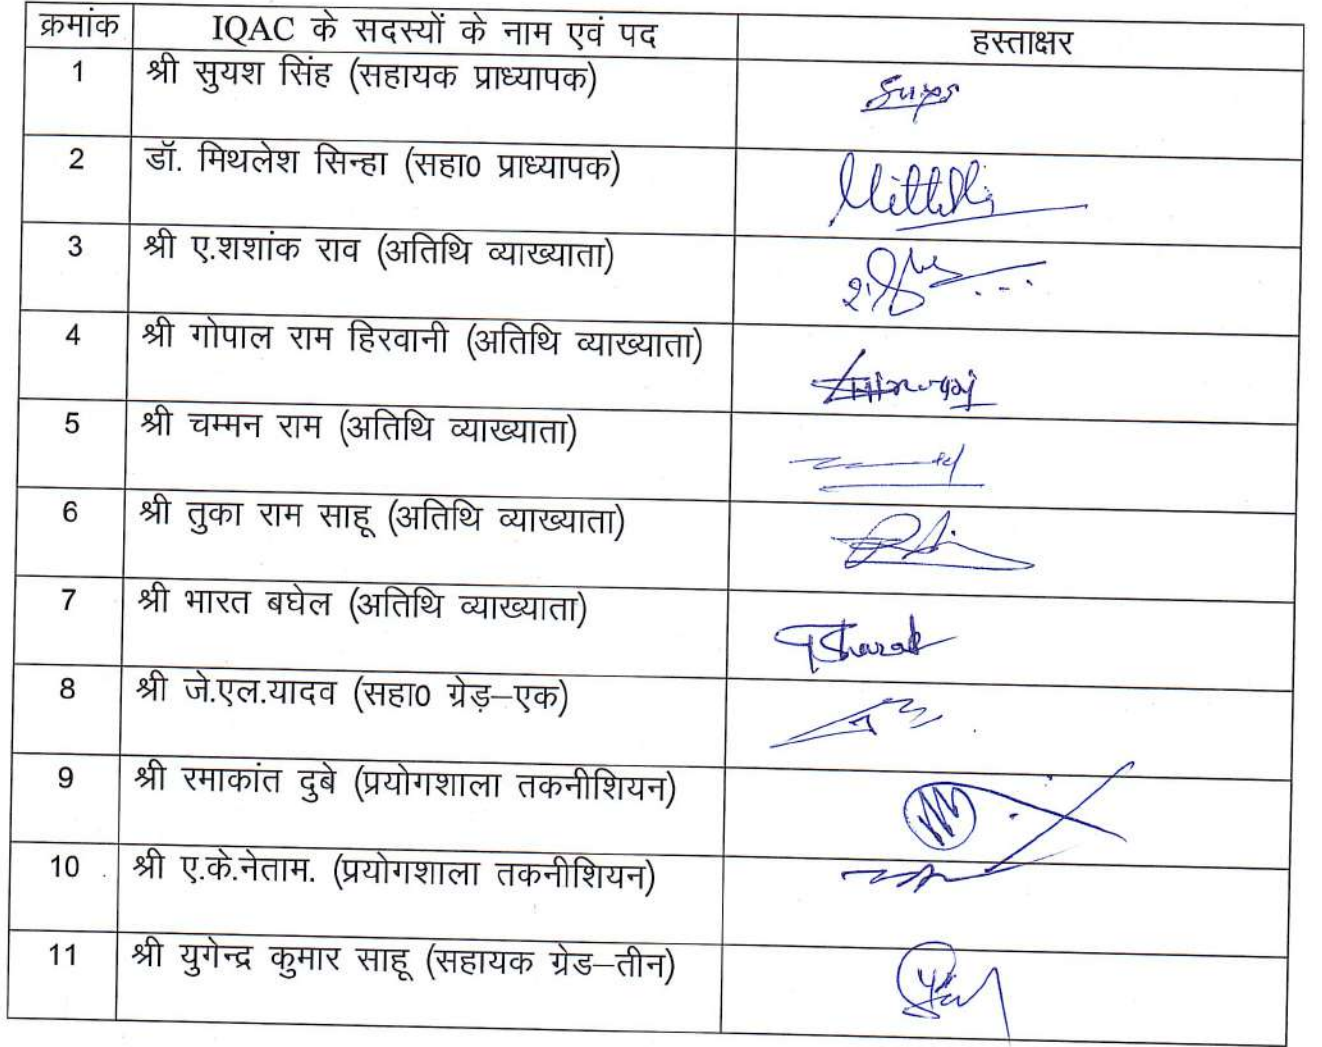 क्रमांक IQAC के सदस्यों के नाम एवं पद हस्ताक्षर
1 श्री सुयश सिंह (सहायक प्राध्यापक)
2 डॉ. मिथलेश सिन्हा (सहा0 प्राध्यापक)
3 श्री ए.शशांक राव (अतिथि व्याख्याता)
4 श्री गोपाल राम हिरवानी (अतिथि व्याख्याता)
5 श्री चम्मन राम (अतिथि व्याख्याता)
6 श्री तुका राम साहू (अतिथि व्याख्याता)
7 श्री भारत बघेल (अतिथि व्याख्याता)
8 श्री जे.एल.यादव (सहा0 ग्रेड़–एक)
9 श्री रमाकांत दुबे (प्रयोगशाला तकनीशियन)
10 श्री ए.के.नेताम. (प्रयोगशाला तकनीशियन)
11 श्री युगेन्द्र कुमार साहू (सहायक ग्रेड–तीन)